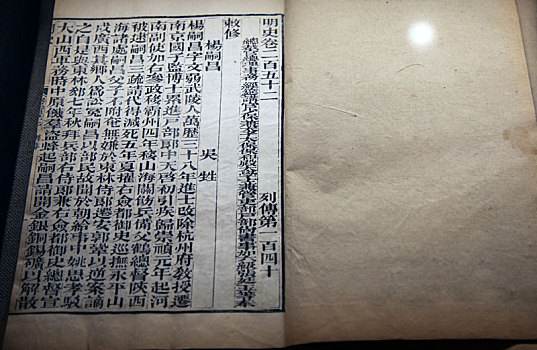 明史卷二百五十二　列傳第一百四十
敕修　總裁官總理事務經筵講官少保兼太子太保保和殿大學士兼管吏部戶部尚書事加六級張廷玉等奉
楊嗣昌　吳甡
楊嗣昌字文弱武陵人萬歷三十八年進士改除杭州府教授遷
南京國子監博士累進戶部郎中天啟初引疾歸崇禎元年起河
南副使加右參政移霸州四年移山海關飭兵備父鶴總督陝西
被逮嗣昌三疏請代得減死五年夏擢右僉都御史巡撫永平山
海諸處嗣昌父子不附奄無嫌於東林侍郎遷安郭鞏以逆案謫
戍廣西其鄉人為訟冤嗣昌以部民故聞於朝給事中姚思孝駁
之自是與東林郄七年秋拜兵部右侍郎兼右僉都御史總督宣
大山西軍務時中原饑羣盜蜂起嗣昌請開金銀銅錫礦以解散